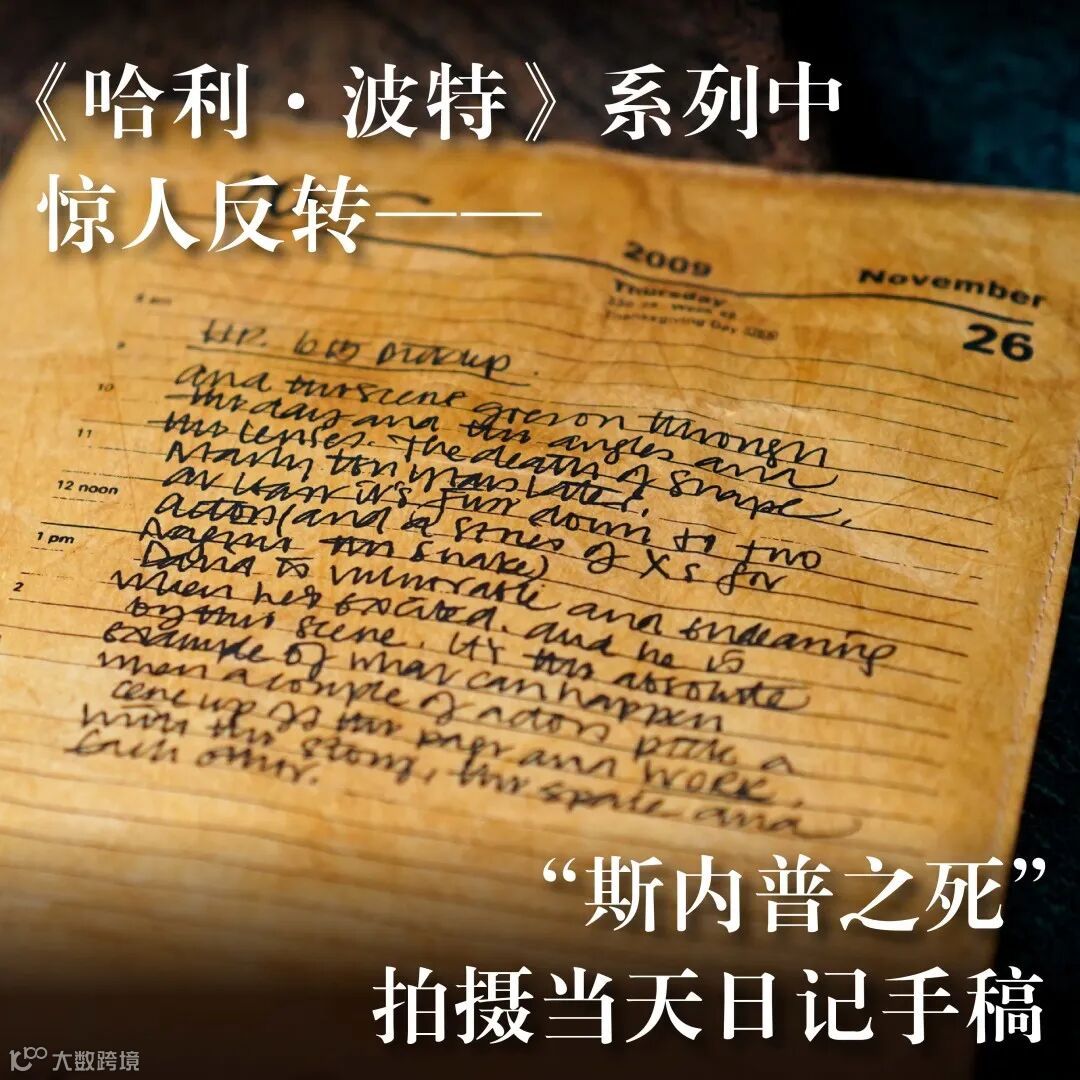 《哈利·波特》系列中
惊人反转——
2009
November
Thursday
26
Thanksgiving Day
8 am
HP. 6.15 Pickup.
9
and the scene goes on through
10
the day and the angles and
the lenses. The death of Snape.
11
Nearly ten years later.
At least it's just down to two
12 noon
actors (and a series of Xs for
Nagini the Snake)
1 pm
David is vulnerable and endearing
when he's excited. and he is
2
by this scene. It's the absolute
example of what can happen
when a couple of actors pick a
scene up off the page and WORK
with the story, the space and
each other.
“斯内普之死”
拍摄当天日记手稿
大数跨境